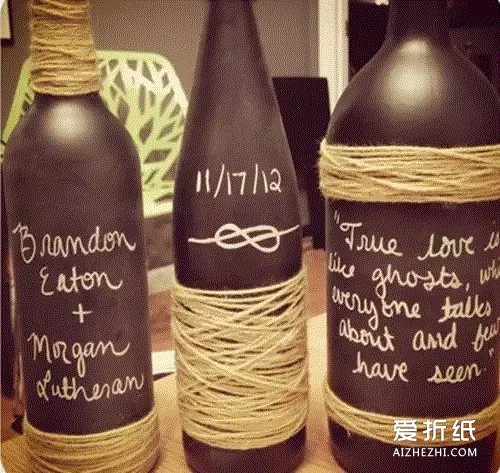 Brandon
Eaton
+
Morgan
Lutheran
11/17/12
"True love is
like ghosts, wh
everyone talks
about and few
have seen."
爱折纸
AIZHEZHI.COM